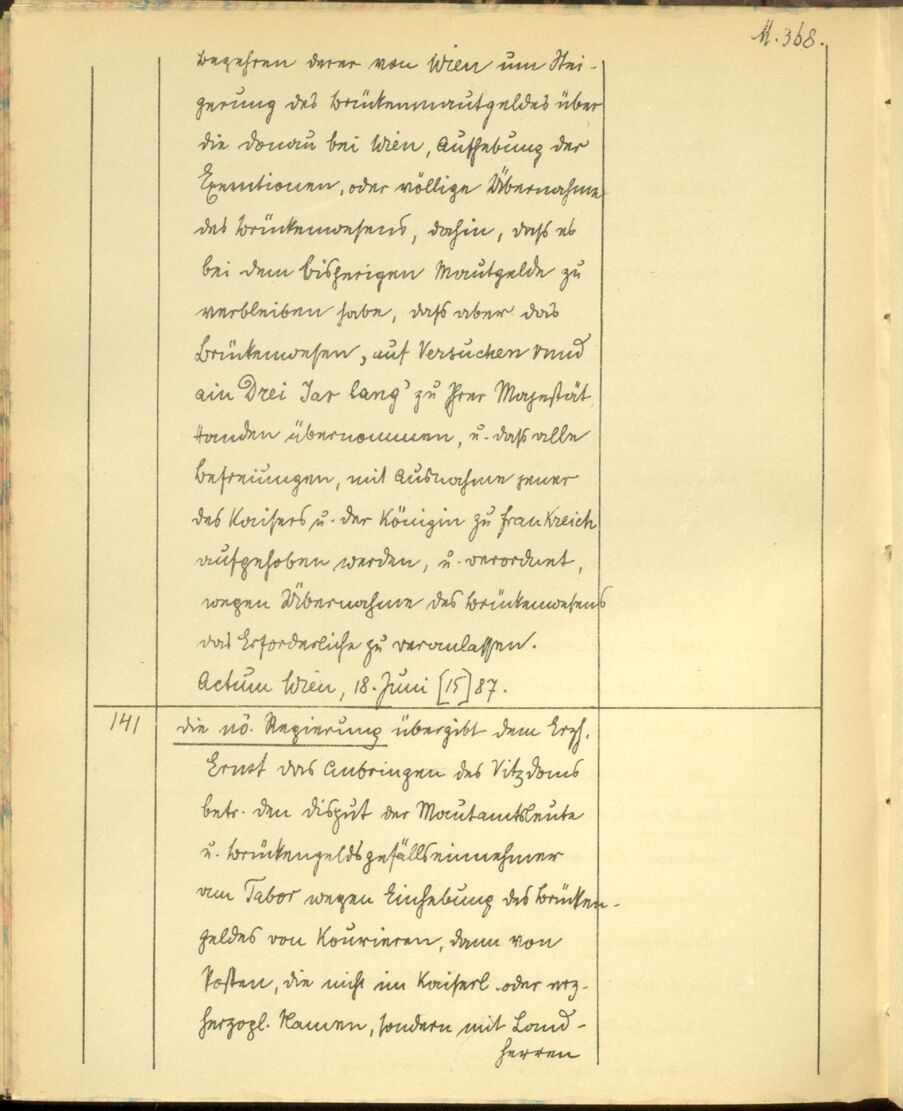 M. 368.
Begehren derer von Wien um Stei-
gerung des Brückenmautgeldes über
die Donau bei Wien, Aufhebung der
Exemtionen, oder völlige Übernahme
des Brückenwesens, dahin, daß es
bei dem bisherigen Mautgelde zu
verbleiben habe, daß aber das
Brückenwesen „auf Versuchen vnnd
ain Drei Jar lang" zu Ihrer Majestät
Handen übernommen, u. daß alle
Befreiungen, mit Ausnahme jener
des Kaisers u. der Königin zu Frankreich
aufgehoben werden, u. verordnet,
wegen Übernahme des Brückenwesens
das Erforderliche zu veranlassen.
Actum Wien, 18. Juni [15]87.
141 Die nö. Regierung übergibt dem Erzh.
Ernst das Anbringen des Vitzdoms
betr. den Disput der Mautamtsleute
u. Brückengeldsgefällseinnehmer
am Tabor wegen Einhebung des Brücken-
geldes von Kourieren, dann von
Posten, die nicht im Kaiserl. oder erz-
herzogl. Namen, sondern mit Land-
herren